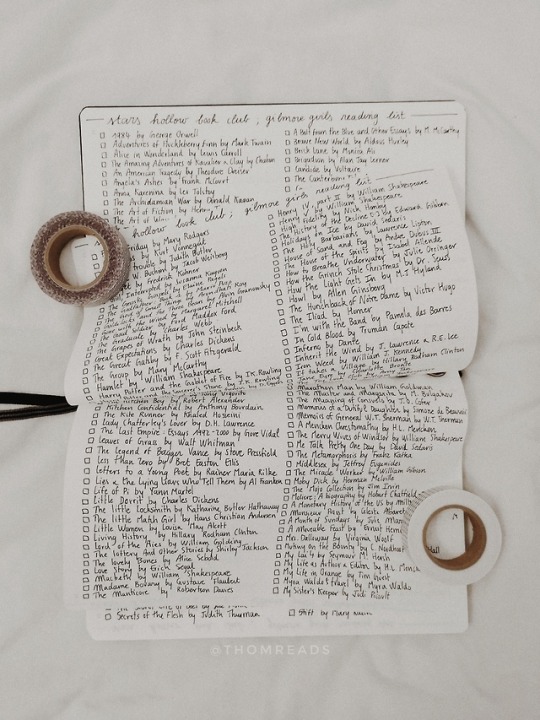 stars hollow book club ; gilmore girls reading list
1984 by George Orwell
Adventures of Huckleberry Finn by Mark Twain
Alice in Wonderland by Lewis Carroll
The Amazing Adventures of Kavalier & Clay by
An American Tragedy by Theodore Dreiser
Angela's Ashes by Frank McCourt
Anna Karenina by Leo Tolstoy
The Archidamian War by Donald Kagan
The Art of Fiction by
The Art of
A Bolt from the Blue and Other Essays by M. McCarthy
Brave New World by Aldous Huxley
Brick Lane by Monica Ali
Brigadoon by Alan Jay Lerner
Candide by Voltaire
The Canterbury
hollow book club ; gilmore girls reading list
Friday by Mary Rodgers
by Kurt Vonnegut
Trouble by Judith Butler
by Jacob Weisberg
by Susanna Kaysen
The Gospel According to Judy Bloom
The Graduate by Charles Webb
The Grapes of Wrath by John Steinbeck
Great Expectations by Charles Dickens
The Great Gatsby by F. Scott Fitzgerald
The Group by Mary McCarthy
Hamlet by William Shakespeare
Harry Potter and the Goblet of Fire by J.K. Rowling
Henry IV, part II by William Shakespeare
High Fidelity by Nick Hornby
The History of the Decline by Edward Gibbon
Holidays on Ice by David Sedaris
The Holy Barbarians by Lawrence Lipton
House of Sand and Fog by Andre Dubus III
The House of the Spirits by Isabel Allende
How to Breathe Underwater by Julie Orringer
How the Grinch Stole Christmas by Dr. Seuss
How the Light Gets In by M.J Hyland
Howl by Allen Ginsberg
The Hunchback of Notre Dame by Victor Hugo
The Iliad by Homer
I'm with the Band by Pamela des Barres
In Cold Blood by Truman Capote
Inferno by Dante
Inherit the Wind by J. Lawrence & R.E. Lee
Iron Weed by William J. Kennedy
It takes a Village by Hillary Rodham Clinton
by Robert Alexander
The Kite Runner by Khaled Hosseini
Kitchen Confidential by Anthony Bourdain
Lady Chatterley's Lover by D.H. Lawrence
The Last Empire : Essays 1992-2000 by Gore Vidal
Leaves of Grass by Walt Whitman
The Legend of Bagger Vance by Steve Pressfield
Less than Zero by Bret Easton Ellis
Letters to a Young Poet by Rainer Maria Rilke
Lies & the Lying Liars Who Tell Them by Al Franken
Life of Pi by Yann Martel
Little Dorrit by Charles Dickens
The Little Locksmith by Katharine Butler Hathaway
The Little Match Girl by Hans Christian Andersen
Little Women by Louisa May Alcott
Living History by Hillary Rodham Clinton
Lord of the Flies by William Golding
The Lottery And Other Stories by Shirley Jackson
The Lovely Bones by Alice Sebold
Love Story by Erich Segal
Macbeth by William Shakespeare
Madame Bovary by Gustave Flaubert
The Manticore by Robertson Davies
Marathon Man by William Goldman
The Master and Margarita by M. Bulgakov
Memoirs of a Dutiful Daughter by Simone de Beauvoir
Memoirs of General W.T. Sherman by W.T. Sherman
A Mencken Chrestomathy by H.L. Mencken
The Merry Wives of Windsor by William Shakespeare
Me Talk Pretty One Day by David Sedaris
The Metamorphosis by Franz Kafka
Middlesex by Jeffrey Eugenides
The Miracle Worker by William Gibson
Moby Dick by Herman Melville
The Mojo Collection by Jim Irvin
Moliere: A biography by Hobart Chatfield
A Monetary History of the US by Milton
Monsieur Proust by Celeste Albaret
A Month of Sundays by Julie
A Moveable Feast by Ernest
Mrs. Dalloway by Virginia Woolf
Mutiny on the Bounty by C. Nordhoff
My Lai by Seymour M. Hersh
My Life as Author & Editor by H.L. Mencken
My Life in Orange by Tim Guest
Myra Waldo's Travel by Myra Waldo
My Sister's Keeper by Jodi Picoult
Secrets of the Flesh by Judith Thurman
@THOMREADS